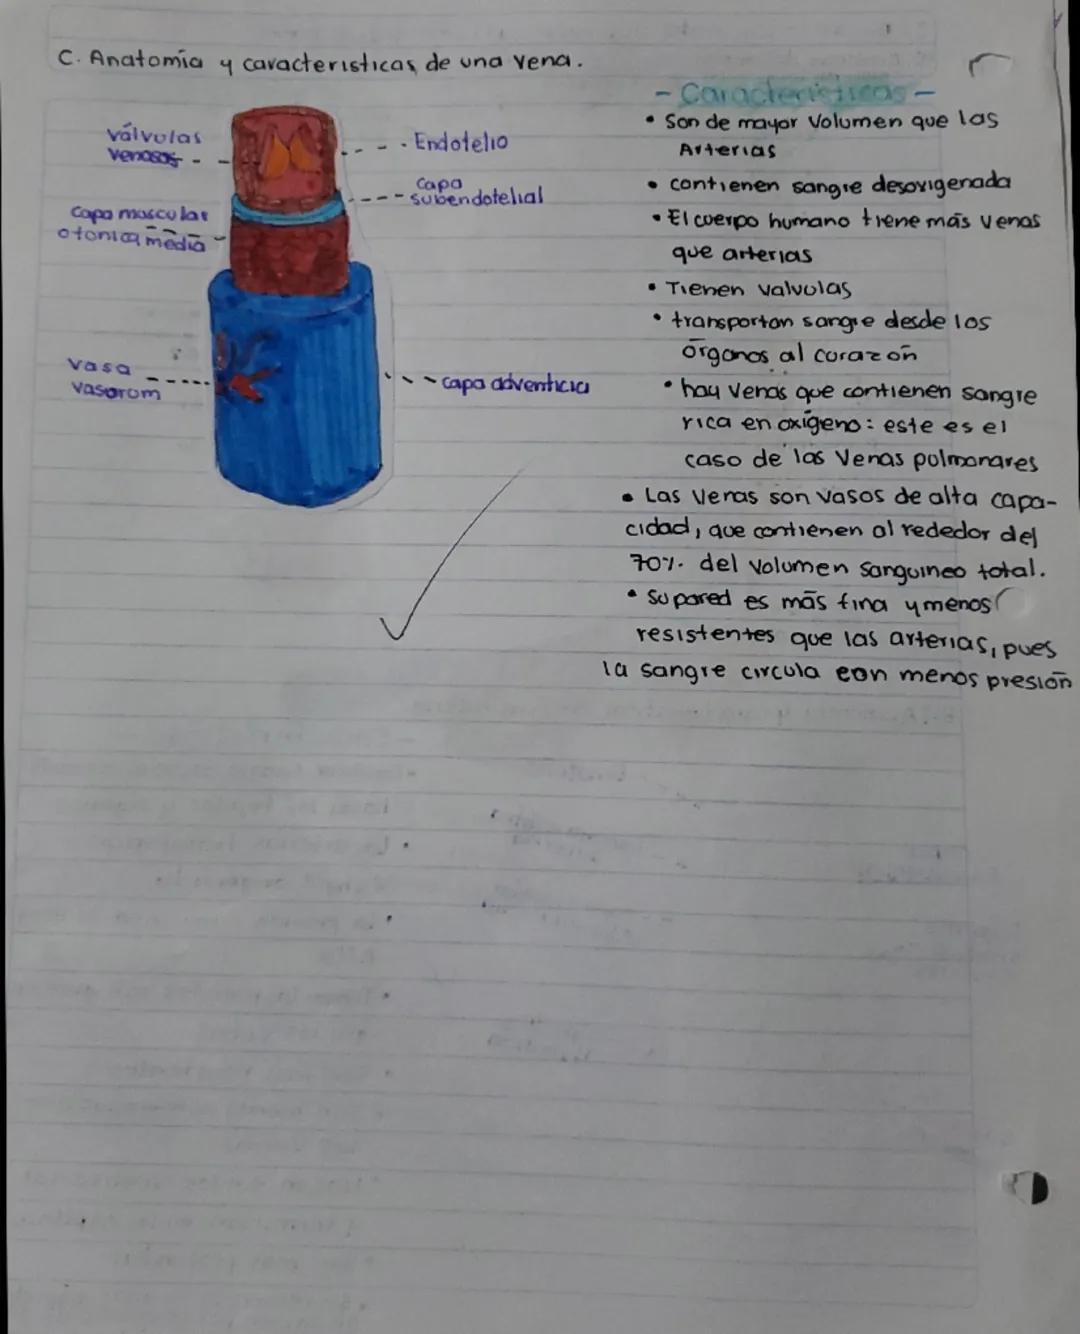 C. Anatomía y caracteristicas de una vena.
válvulas
venosas
capa muscular
o tonica media
vasa
vasorom
Endotelio
capa
subendotelial
capa adventicia
- Características -
• Son de mayor Volumen que las
Arterias
• contienen sangre desoxigenada
• El cuerpo humano tiene más venas
que arterias
• Tienen valvulas
• transportan sangre desde los
órganos al corazón
• hay venas que contienen sangre
rica en oxígeno: este es el
caso de las Venas pulmonares
• Las Venas son vasos de alta capa-
cidad, que contienen al rededor del
70%. del volumen sanguineo total.
• Su pared es más fina y menos
resistentes que las arterias, pues
la sangre circula con menos presión